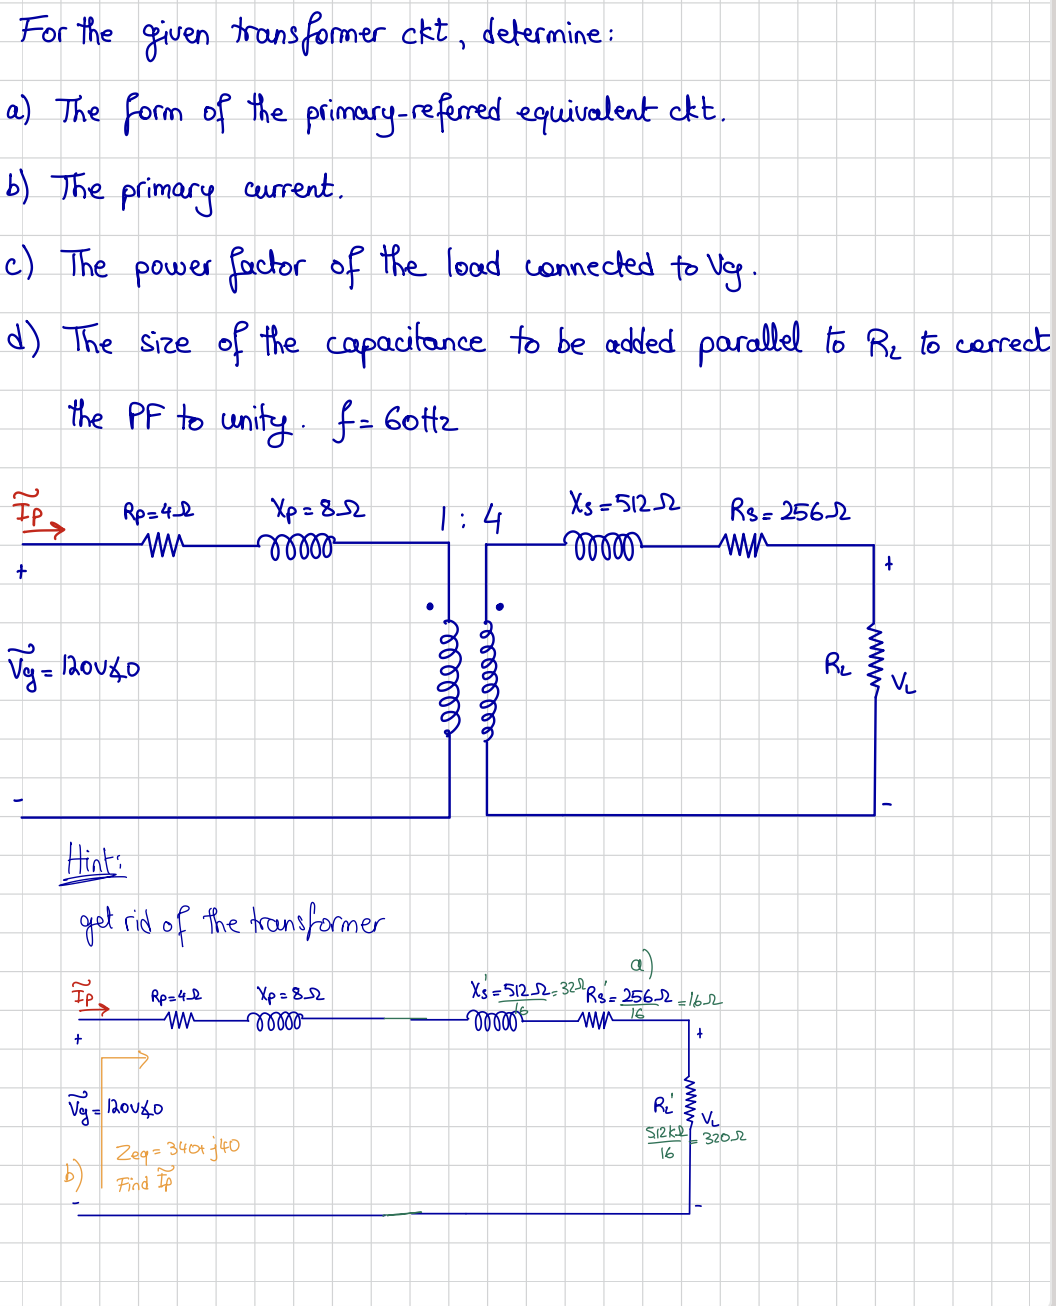 For the given transformer ckt, determine:
a) The form of the primary-referred equivalent ckt.
b) The primary current.
c) The power factor of the load connected to Vg.
d) The size of the capacitance to be added parallel to RL to correct
the PF to unity. f= 60Hz
Ip
Rp=4Ω
Xp=8Ω
1 : 4
Xs=512Ω
Rs=256Ω
+
+
Vg = 120V∡0
RL
VL
-
-
Hint:
get rid of the transformer
a)
Ip
Rp=4Ω
Xp=8Ω
Xs'=512Ω/16=32Ω
Rs'=256Ω/16=16Ω
+
+
Vg = 120V∡0
RL'
VL
5.12kΩ/16 = 320Ω
Zeq = 340+j40
b)
Find Ip
-
-